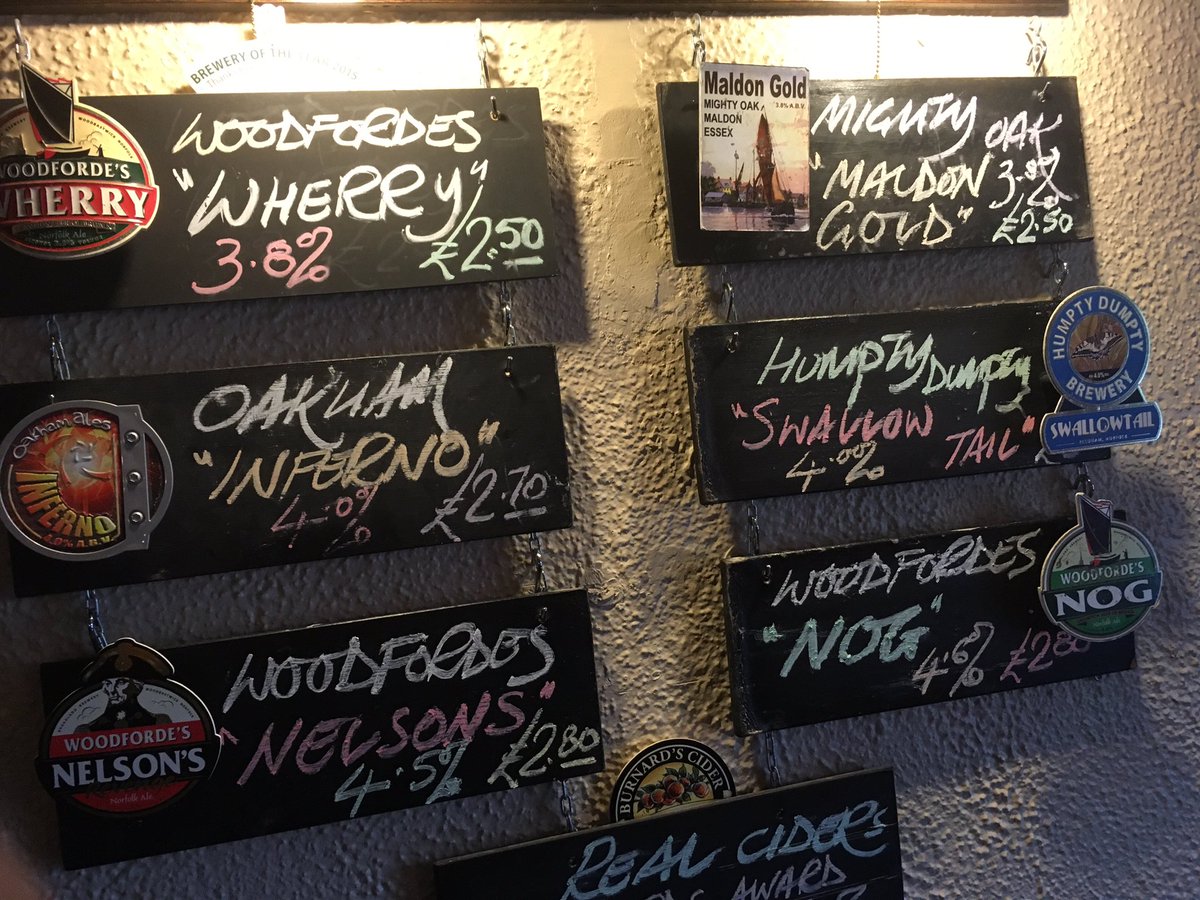 BREWERY OF THE YEAR 2015
WOODFORDE'S
WHERRY
Norfolk Ale
WOODFORDES
"WHERRY"
3.8% £2.50
Oakham Ales
INFERNO
4.0% A.B.V.
OAKHAM
"INFERNO"
4.0% £2.70
WOODFORDE'S
NELSON'S
Norfolk Ale
WOODFORDES
"NELSONS"
4.5% £2.80
Maldon Gold
MIGHTY OAK 3.8% A.B.V.
MALDON
ESSEX
MIGHTY OAK
"MALDON 3.8%
GOLD" £2.50
HUMPTY DUMPTY
"SWALLOW TAIL"
4.0%
HUMPTY DUMPTY
BREWERY
SWALLOWTAIL
WOODFORDES
"NOG"
4.6% £2.80
WOODFORDE'S
NOG
Norfolk Ale
BURNARD'S CIDER
REAL CIDERS
AWARD